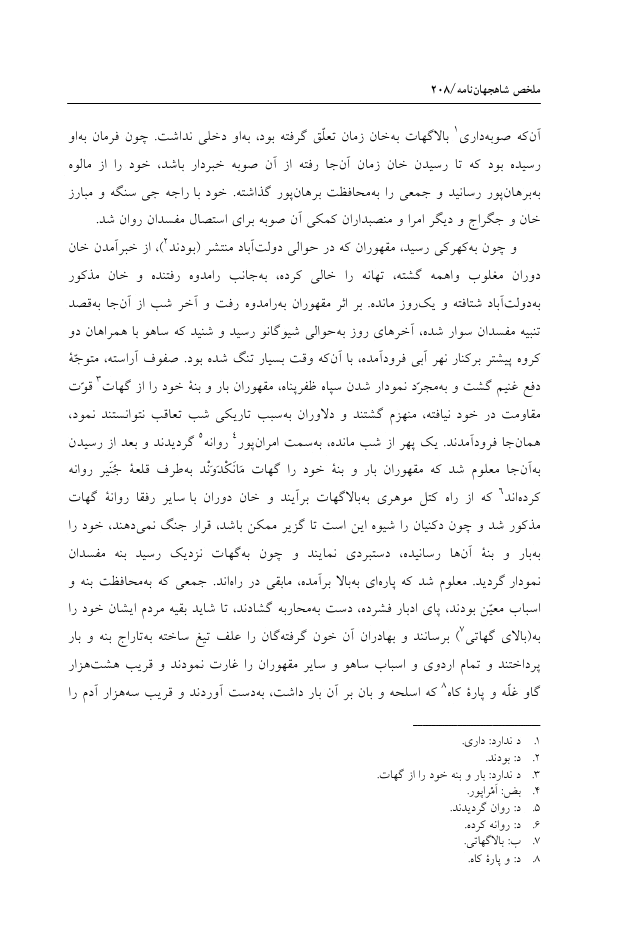 ملخص شاهجهان‌نامه/۲۰۸
آن‌که صوبه‌داری۱ بالاگهات به‌خان زمان تعلّق گرفته بود، به‌او دخلی نداشت. چون فرمان به‌او
رسیده بود که تا رسیدن خان زمان آن‌جا رفته از آن صوبه خبردار باشد، خود را از مالوه
به‌برهان‌پور رسانید و جمعی را به‌محافظت برهان‌پور گذاشته. خود با راجه جی سنگه و مبارز
خان و جگراج و دیگر امرا و منصبداران کمکی آن صوبه برای استصال مفسدان روان شد.
و چون به‌کهرکی رسید، مقهوران که در حوالی دولت‌آباد منتشر (بودند۲)، از خبرآمدن خان
دوران مغلوب واهمه گشته، تهانه را خالی کرده، به‌جانب رامدوه رفتنده و خان مذکور
به‌دولت‌آباد شتافته و یک‌روز مانده. بر اثر مقهوران به‌رامدوه رفت و آخر شب از آن‌جا به‌قصد
تنبیه مفسدان سوار شده، آخرهای روز به‌حوالی شیوگانو رسید و شنید که ساهو با همراهان دو
کروه پیشتر برکنار نهر آبی فرودآمده، با آن‌که وقت بسیار تنگ شده بود. صفوف آراسته، متوجّهٔ
دفع غنیم گشت و به‌مجرّد نمودار شدن سپاه ظفرپناه، مقهوران بار و بنهٔ خود را از گهات۳ قوّت
مقاومت در خود نیافته، منهزم گشتند و دلاوران به‌سبب تاریکی شب تعاقب نتوانستند نمود،
همان‌جا فرودآمدند. یک پهر از شب مانده، به‌سمت امران‌پور۴ روانه۵ گردیدند و بعد از رسیدن
به‌آن‌جا معلوم شد که مقهوران بار و بنهٔ خود را گهات مَانَکْدَوَنْد به‌طرف قلعهٔ جُنَیر روانه
کرده‌اند۶ که از راه کتل موهری به‌بالاگهات برآیند و خان دوران با سایر رفقا روانهٔ گهات
مذکور شد و چون دکنیان را شیوه این است تا گزیر ممکن باشد، قرار جنگ نمی‌دهند، خود را
به‌بار و بنهٔ آن‌ها رسانیده، دستبردی نمایند و چون به‌گهات نزدیک رسید بنه مفسدان
نمودار گردید. معلوم شد که پاره‌ای به‌بالا برآمده، مابقی در راه‌اند. جمعی که به‌محافظت بنه و
اسباب معیّن بودند، پای ادبار فشرده، دست به‌محاربه گشادند، تا شاید بقیه مردم ایشان خود را
به‌(بالای گهاتی۷) برسانند و بهادران آن خون گرفته‌گان را علف تیغ ساخته به‌تاراج بنه و بار
پرداختند و تمام اردوی و اسباب ساهو و سایر مقهوران را غارت نمودند و قریب هشت‌هزار
گاو غلّه و پارهٔ کاه۸ که اسلحه و بان بر آن بار داشت، به‌دست آوردند و قریب سه‌هزار آدم را
۱. د ندارد: داری.
۲. د: بودند.
۳. د ندارد: بار و بنه خود را از گهات.
۴. بض: آمْراپور.
۵. د: روان گردیدند.
۶. د: روانه کرده.
۷. ب: بالاگهاتی.
۸. د: و پارهٔ کاه.